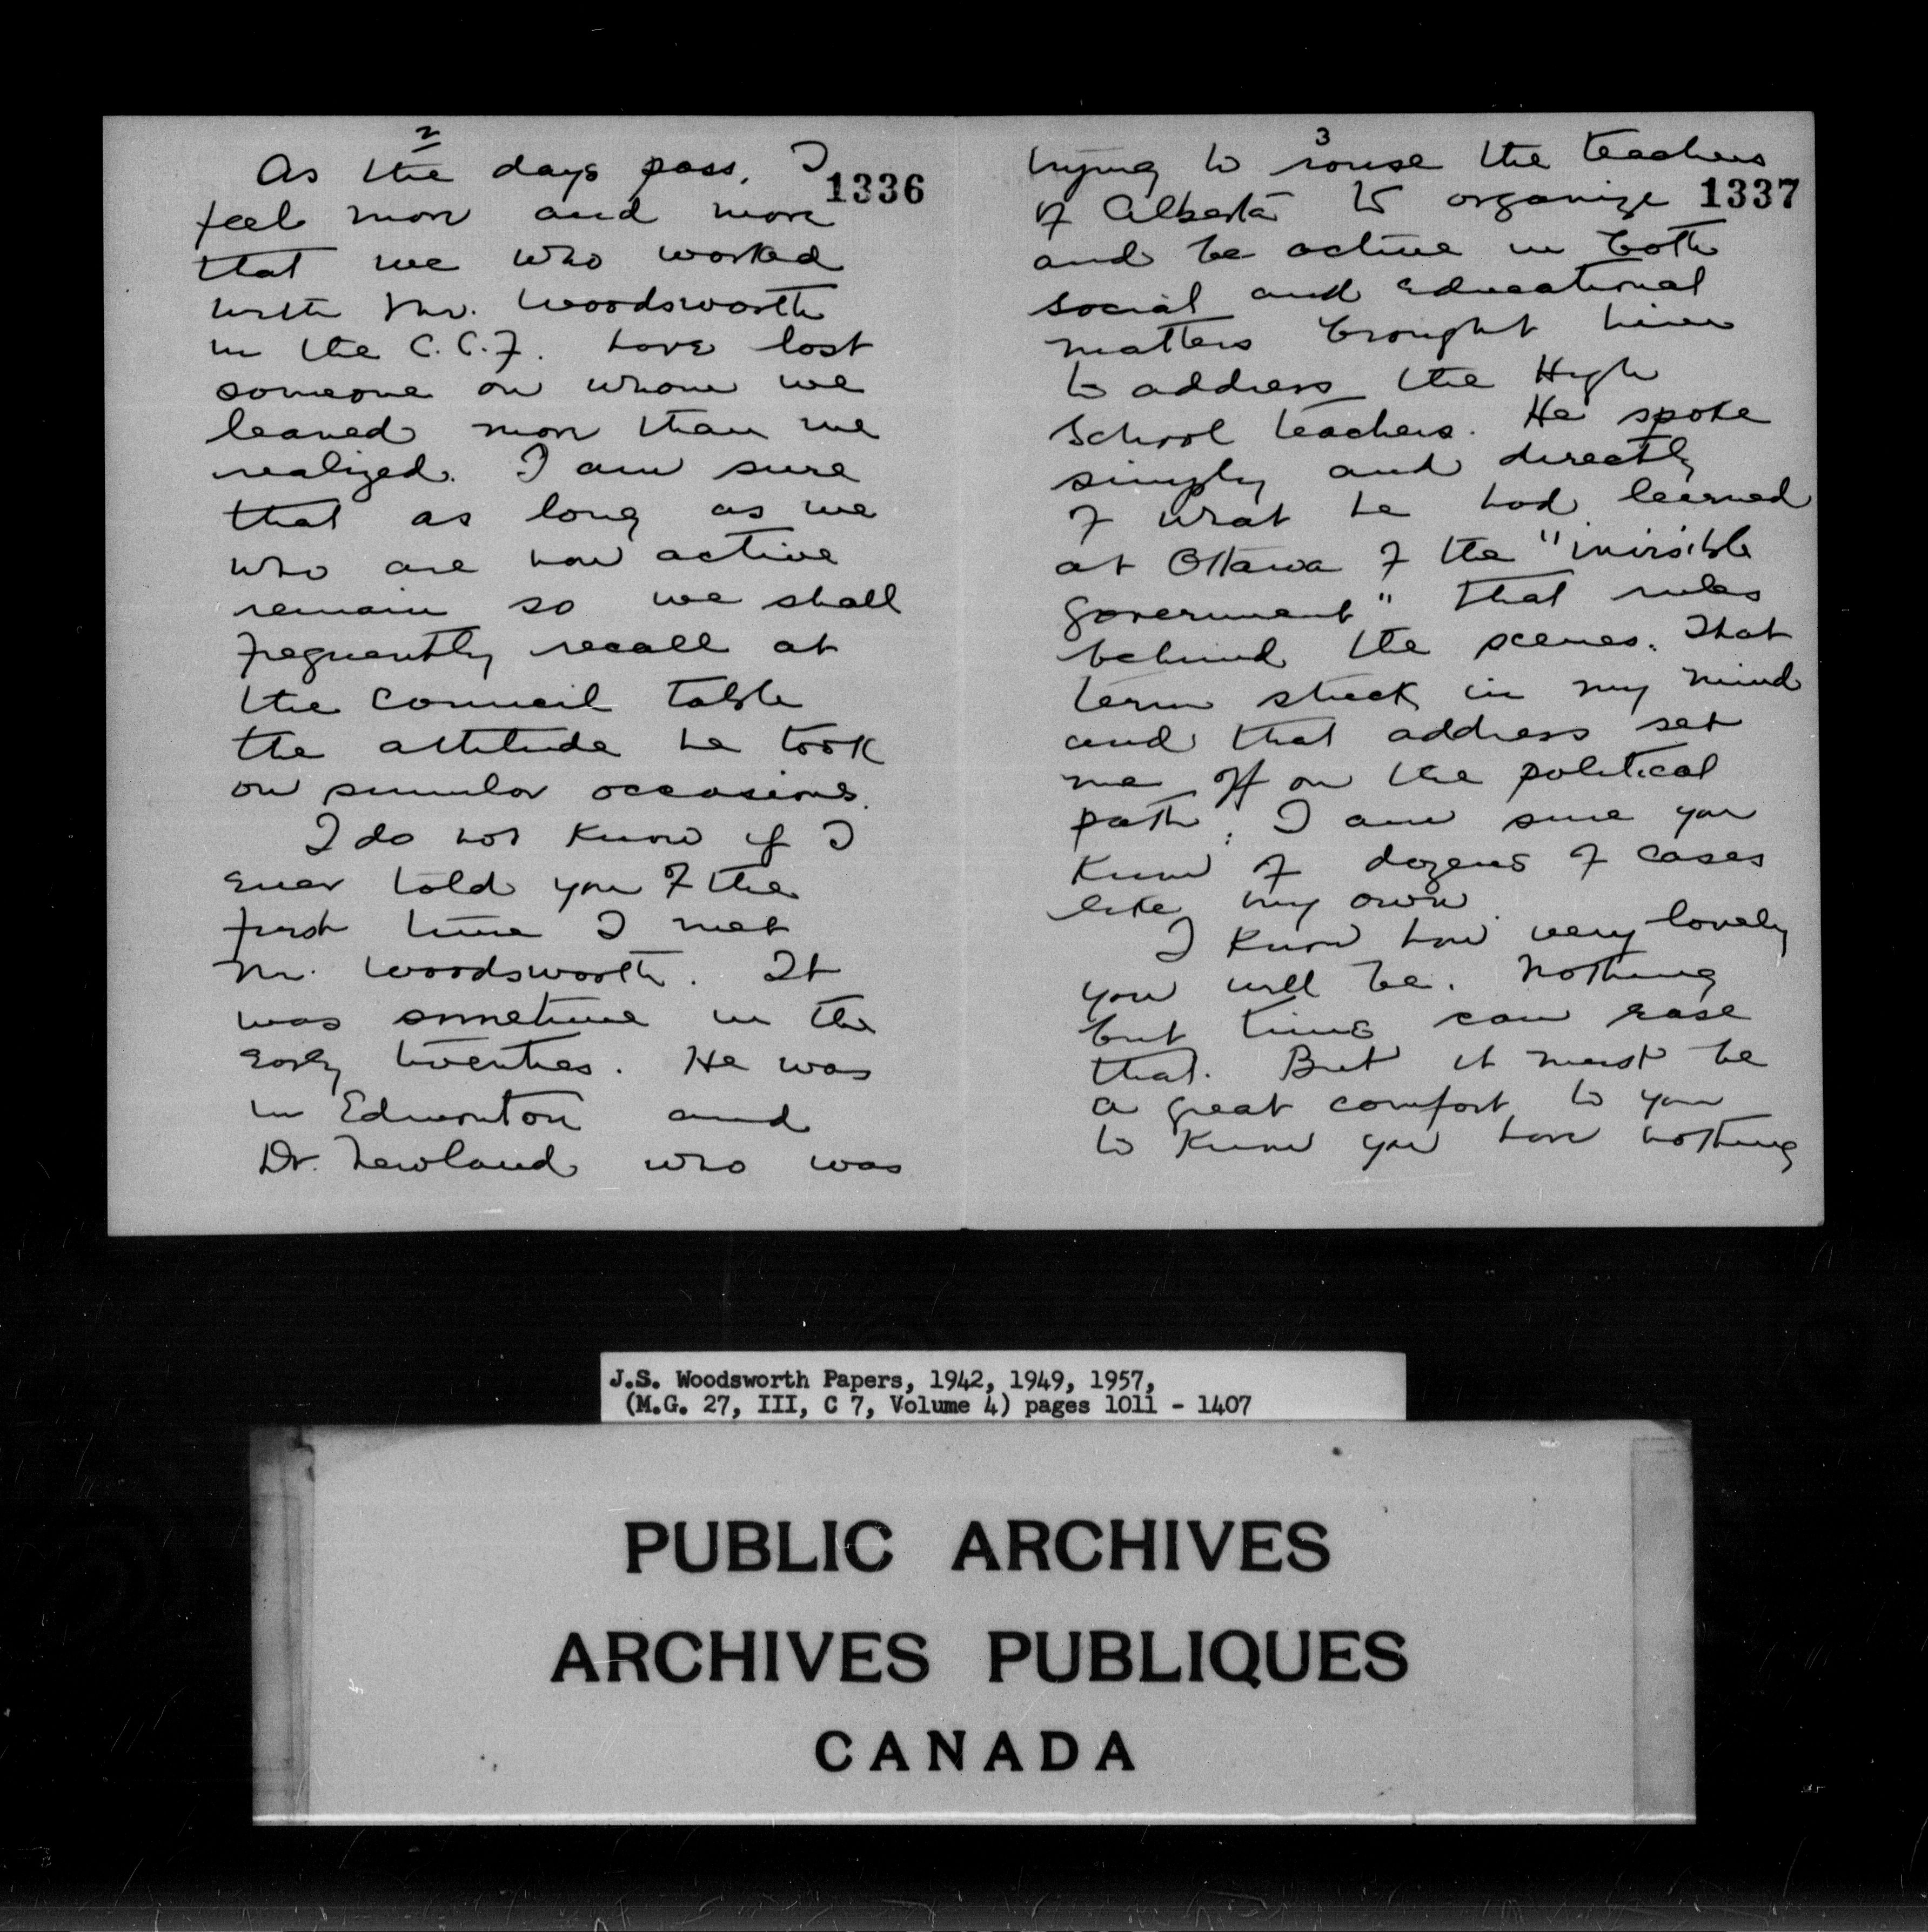 2
As the days pass, I
1336
feel more and more
that we who worked
with Mr. Woodsworth
in the C.C.F. have lost
someone on whom we
leaned more than we
realized. I am sure
that as long as we
who are now active
remain so we shall
frequently recall at
the council table
the attitude he took
on similar occasions.
I do not know if I
ever told you of the
first time I met
Mr. Woodsworth. It
was sometime in the
early twenties. He was
in Edmonton and
Dr. Newland who was
3
trying to rouse the teachers
of Alberta to organize
1337
and be active in both
social and educational
matters brought him
to address the High
School teachers. He spoke
simply and directly
of what he had learned
at Ottawa of the "invisible
government" that rules
behind the scenes. That
term stuck in my mind
and that address set
me off on the political
path. I am sure you
know of dozens of cases
like my own.
I know how very lonely
you will be. Nothing
but time can ease
that. But it must be
a great comfort to you
to know you have nothing
J.S. Woodsworth Papers, 1942, 1949, 1957,
(M.G. 27, III, C 7, Volume 4) pages 1011 - 1407
PUBLIC ARCHIVES
ARCHIVES PUBLIQUES
CANADA